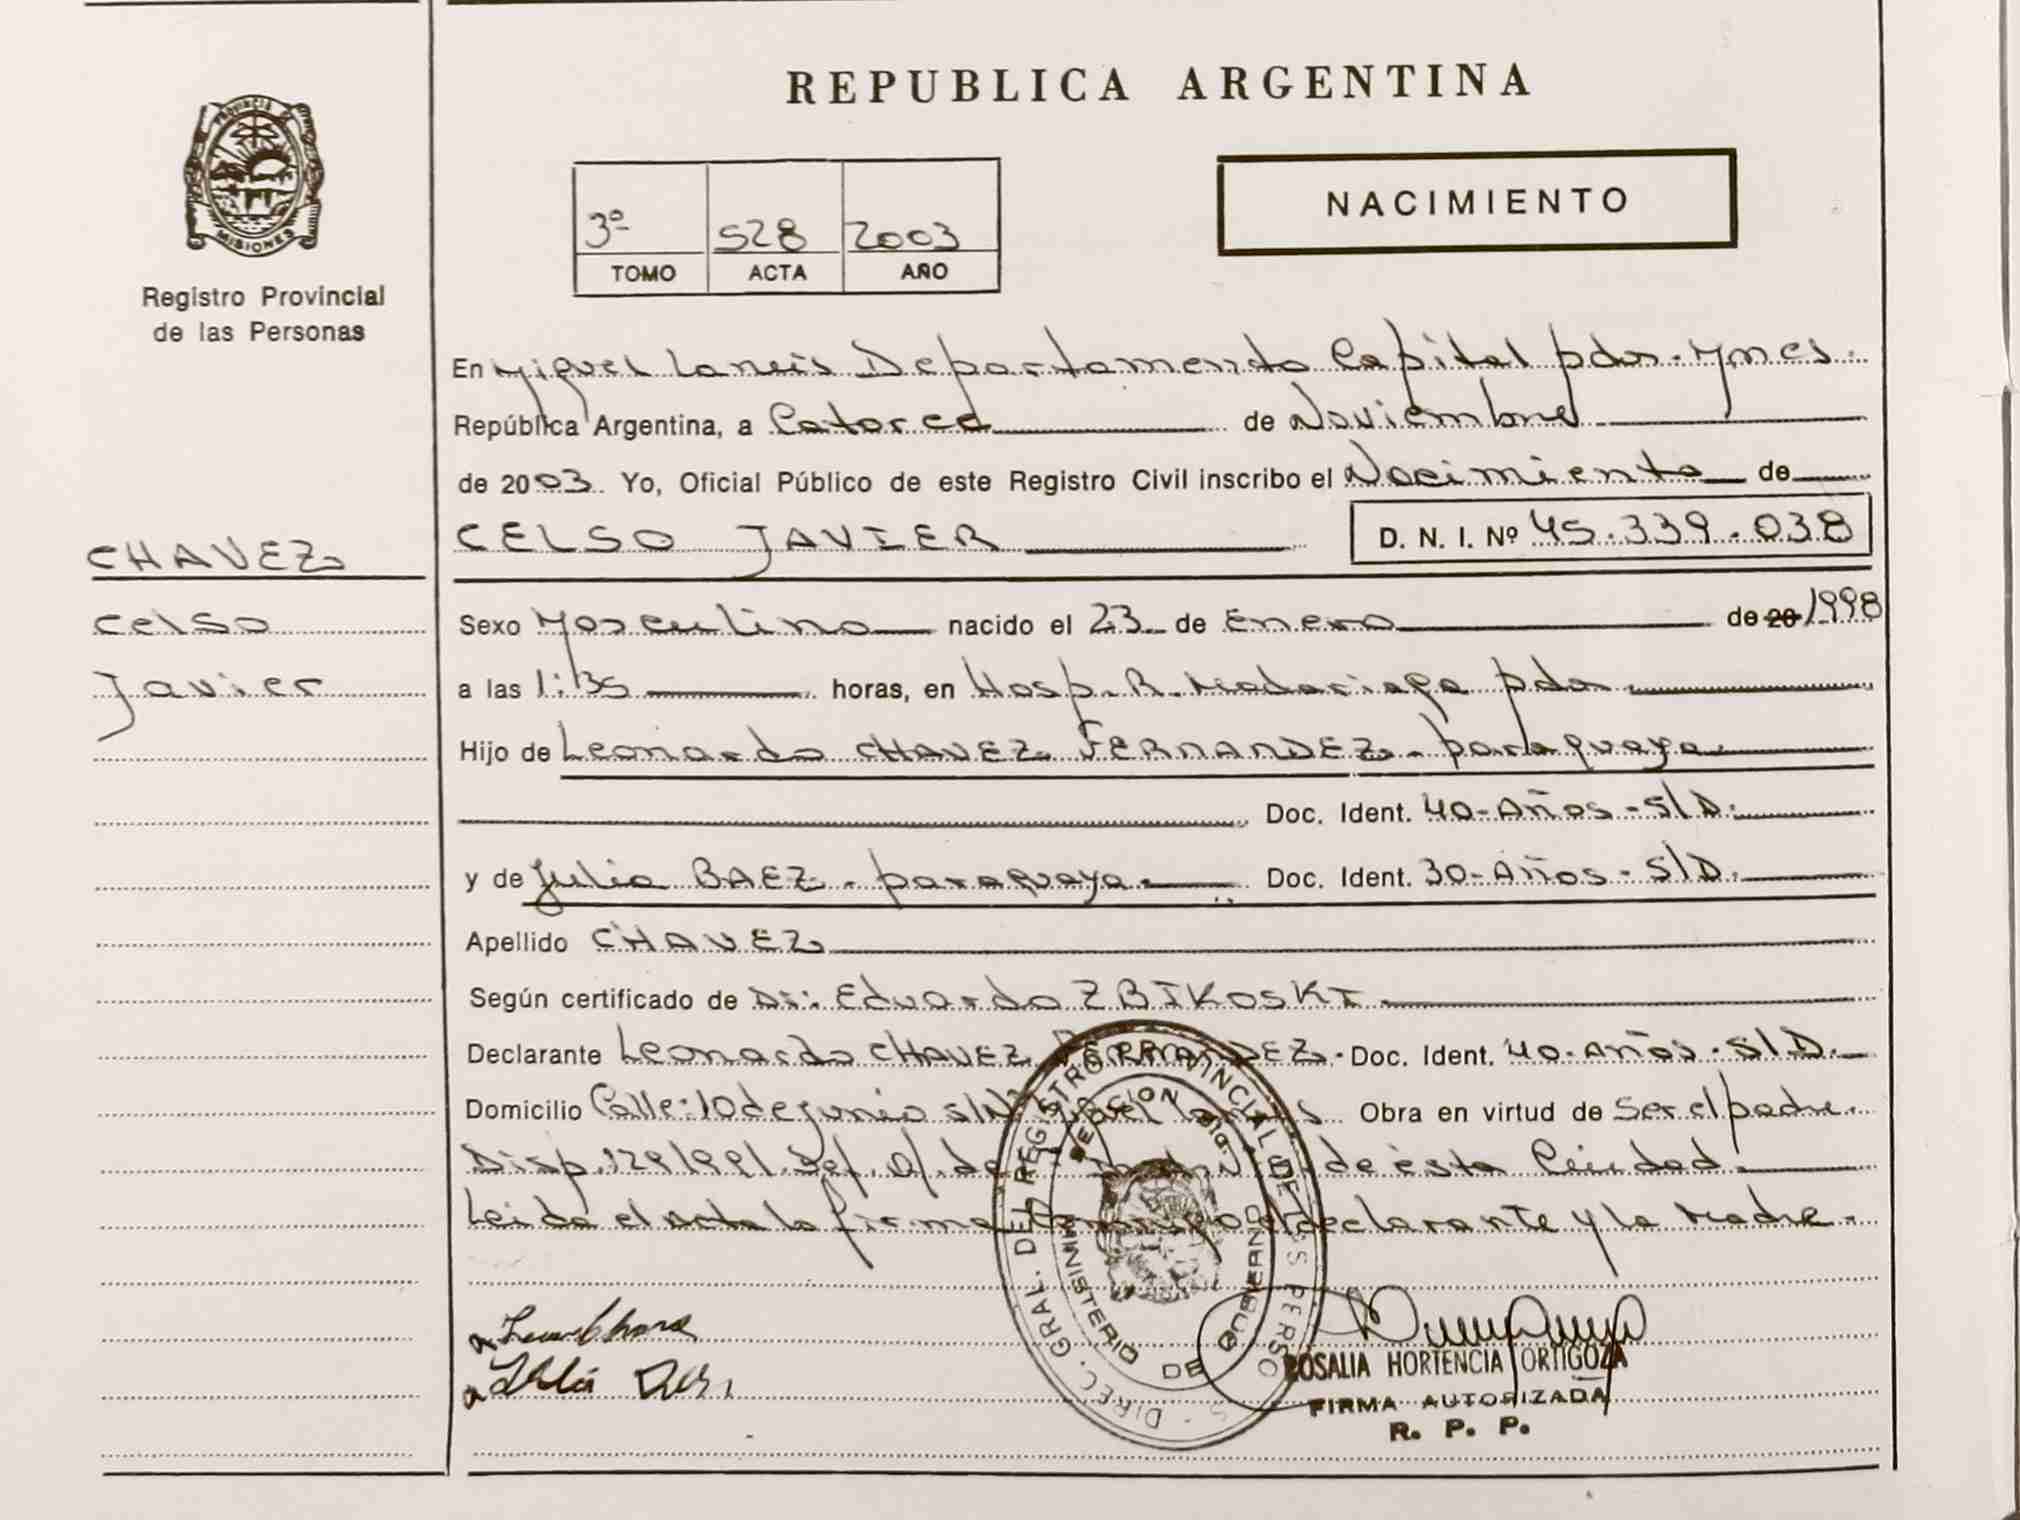 REPUBLICA ARGENTINA
PROVINCIA
MISIONES
Registro Provincial
de las Personas
3º 528 2003
TOMO ACTA AÑO
NACIMIENTO
En Miguel Lanús Departamento Capital pdas. Mnes.
República Argentina, a Catorce de Noviembre
de 2003. Yo, Oficial Público de este Registro Civil inscribo el Nacimiento de
CELSO JAVIER D. N. I. Nº 45.339.038
CHAVEZ
Celso
Javier
Sexo Masculino nacido el 23 de Enero de 20 1998
a las 1:35 horas, en Hosp. R. Madariaga pdas
Hijo de Leonardo CHAVEZ FERNANDEZ - paraguaya
Doc. Ident. 40-Años-S/D.
y de Julia BAEZ - paraguaya - Doc. Ident. 30-Años-S/D.
Apellido CHAVEZ
Según certificado de Dr: Eduardo ZBIKOSKI
Declarante Leonardo CHAVEZ FERNANDEZ. Doc. Ident. 40-Años-S/D.
Domicilio Calle: 10 de junio S/Nº Miguel Lanús Obra en virtud de Ser el padre.
Disp. 129/99/. de ésta Ciudad.
Leida el Acta la firma conmigo el declarante y la Madre.
DIREC. GRAL. DEL REGISTRO PROVINCIAL DE LAS PERSONAS
MINISTERIO DE GOBIERNO
ROSALIA HORTENCIA ORTIGOZA
FIRMA AUTORIZADA
R. P. P.